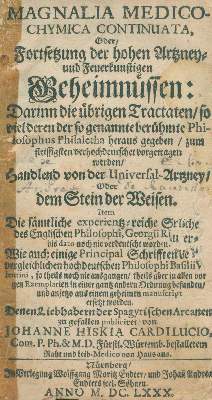 MAGNALIA MEDICO-
CHYMICA CONTINUATA,
Oder/
Fortsetzung der hohen Artzney-
und Feuerkunstigen
Geheimnussen:
Darinn die übrigen Tractaten/ so
viel deren der so genannte berühmte Phi-
losophus Philaletha heraus gegeben/ zum
fleissigsten verhochdeutschet vorgetragen
werden/
Handlend von der Universal-Artzney/
Oder
dem Stein der Weisen.
Item
Die sämtliche experientz-reiche
des Englischen Philosophi, Georgii
bis dato noch nie verdeutscht worden.
Wie auch einige Principal Schrifften
vergleichlichen hochdeutschen Philosophi Basilii
so theils noch nie ausgangen/ theils aber in allen vori-
gen Exemplarien in einer gantz andern Ordnung befunden/
und anjetzo aus einem geheimen manuscript
ersetzt worden.
Denen Liebhabern der Spagyrischen Arcanen
zu gefallen publiciret von
JOHANNE HISKIA CARDILUCIO,
Com. P. Ph. & M.D. Fürstl. Würtemb. bestalltem
Raht und leib-Medico von Haus aus.
Nürnberg/
In Verlegung Wolffgang Moritz Endter/ und Johan Andreæ
Endters sel. Söhne.
ANNO M DC LXXX.